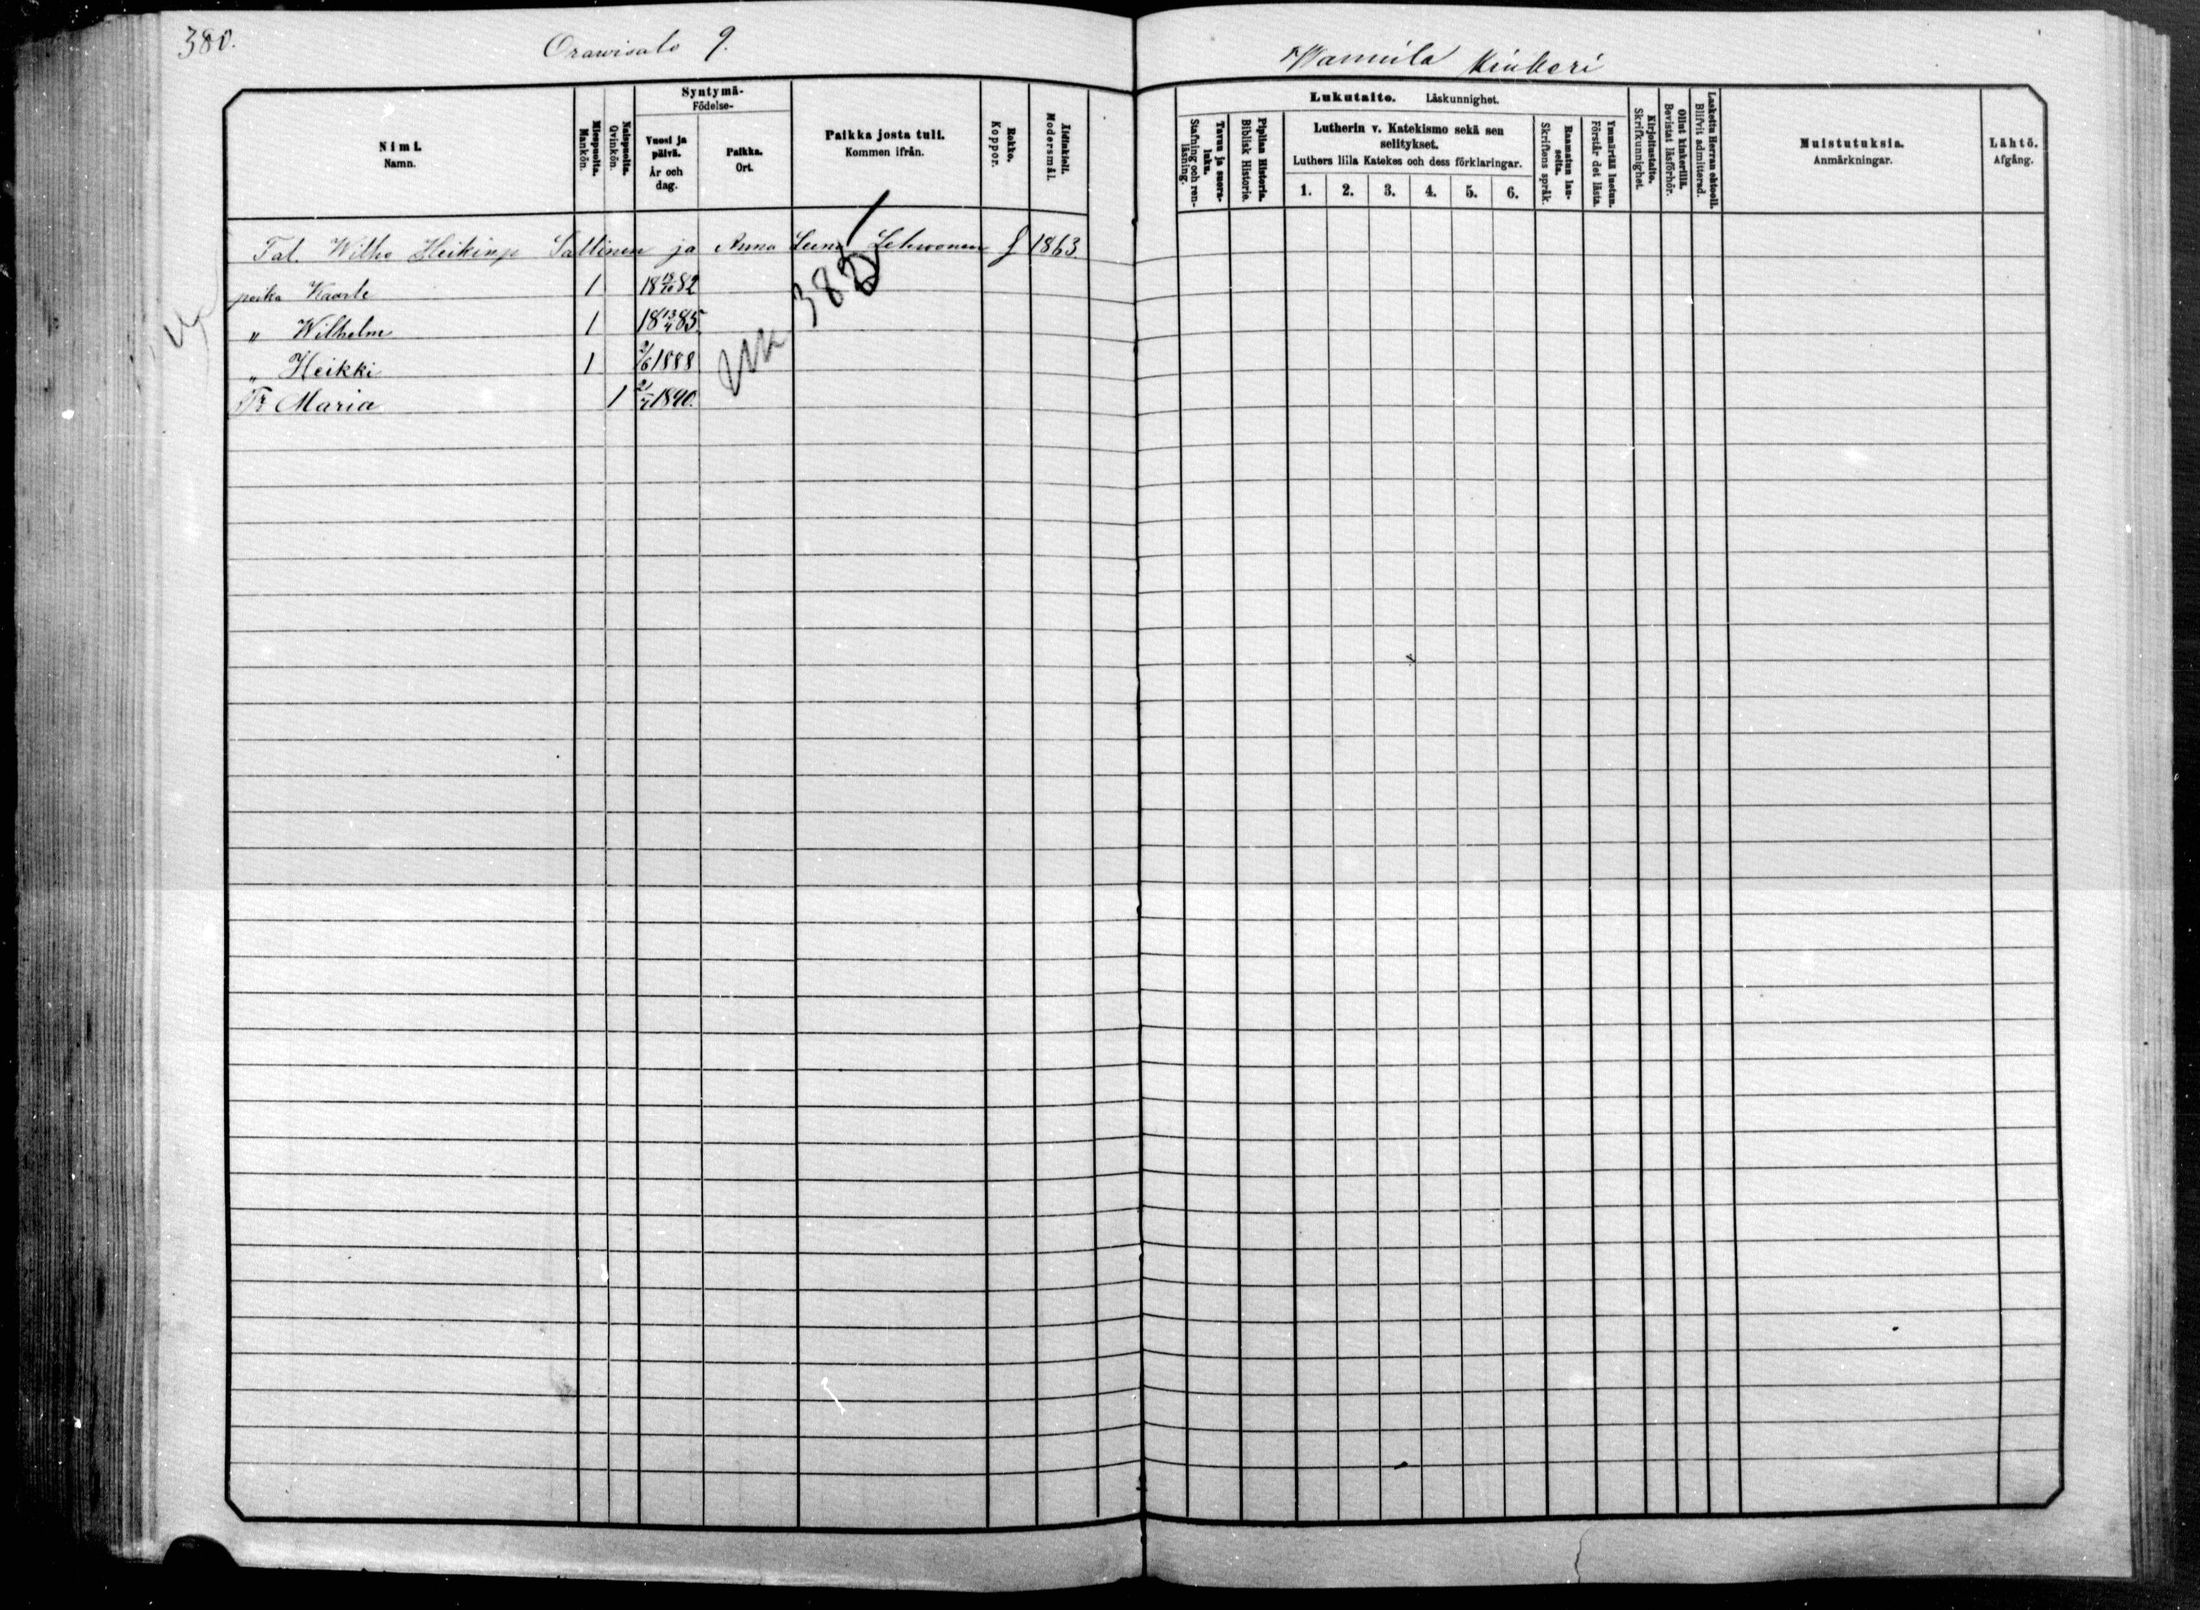 380.
Orawisalo 9.
Nimi.
Namn.
Miespuolia.
Mankön.
Naispuolia.
Qvinkön.
Syntymä-
Födelse-
Vuosi ja
päivä.
År och
dag.
Paikka.
Ort.
Paikka josta tuli.
Kommen ifrån.
Rokko.
Koppor.
Äidinkieli.
Modersmål.
Tal. Wilho Heikinp Sallinen ja Anna Leena Lehwonen f 1863
poika Kaarle 1 18 18/10 82
" Wilhelm 1 18 13/4 85
" Heikki 1 2/6 1888
Tr Maria 1 2/7 1890.
382
Kinkeri
Lukutaito. Läskunnighet.
Tavuu ja suora-
luku.
Stafning och ren-
läsning.
Piplian Historia.
Biblisk Historie.
Lutherin v. Katekismo sekä sen
selitykset.
Luthers lilla Katekes och dess förklaringar.
1. 2. 3. 4. 5. 6.
Raamatun lau-
seita.
Skriftens språk.
Ymmärtää luetun.
Förstår det lästa.
Kirjoitustaito.
Skrifkunnighet.
Ollut kinkerillä.
Bevistat läsförhör.
Laskettu Herran ehtoolle.
Blifvit admitterad.
Muistutuksia.
Anmärkningar.
Lähtö.
Afgång.